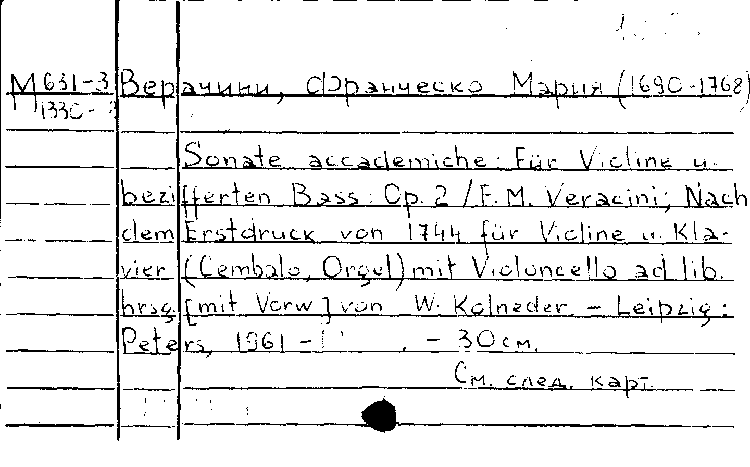 М 631-3 Верачини, Франческо Мария (1690-1768)
1330-
Sonate accademiche: Für Violine u.
bezifferten Bass: Op. 2 / F. M. Veracini; Nach
dem Erstdruck von 1744 für Violine u. Kla-
vier (Cembalo, Orgel) mit Violoncello ad lib.
hrsg. [mit Vorw] von W. Kolneder. – Leipzig:
Peters, 1961 – . – 30 см.
См. след. карт.